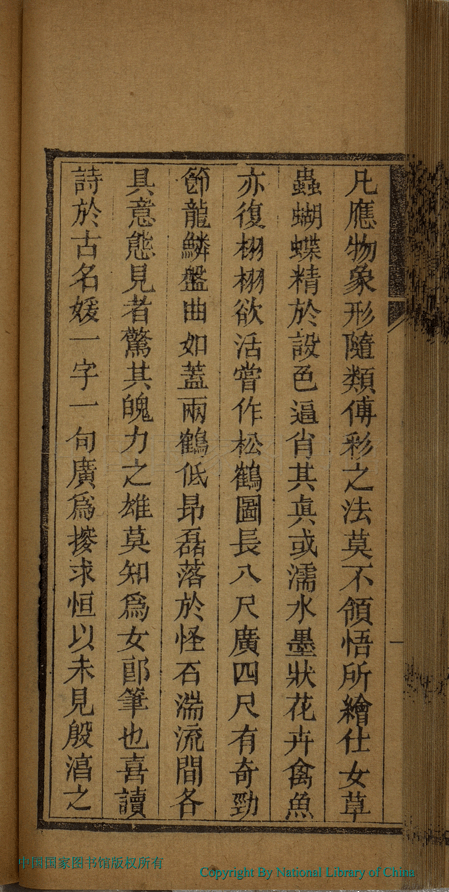 凡應物象形隨類傅彩之法莫不領悟所繪仕女草
蟲蝴蝶精於設色逼肖其眞或濡水墨狀花卉禽魚
亦復栩栩欲活嘗作松鶴圖長八尺廣四尺有奇勁
節龍鱗盤曲如蓋兩鶴低昂磊落於怪石湍流間各
具意態見者驚其魄力之雄莫知爲女郎筆也喜讀
詩於古名媛一字一句廣爲搜求恒以未見殷湻之
中国国家图书馆版权所有
Copyright By National Library of China